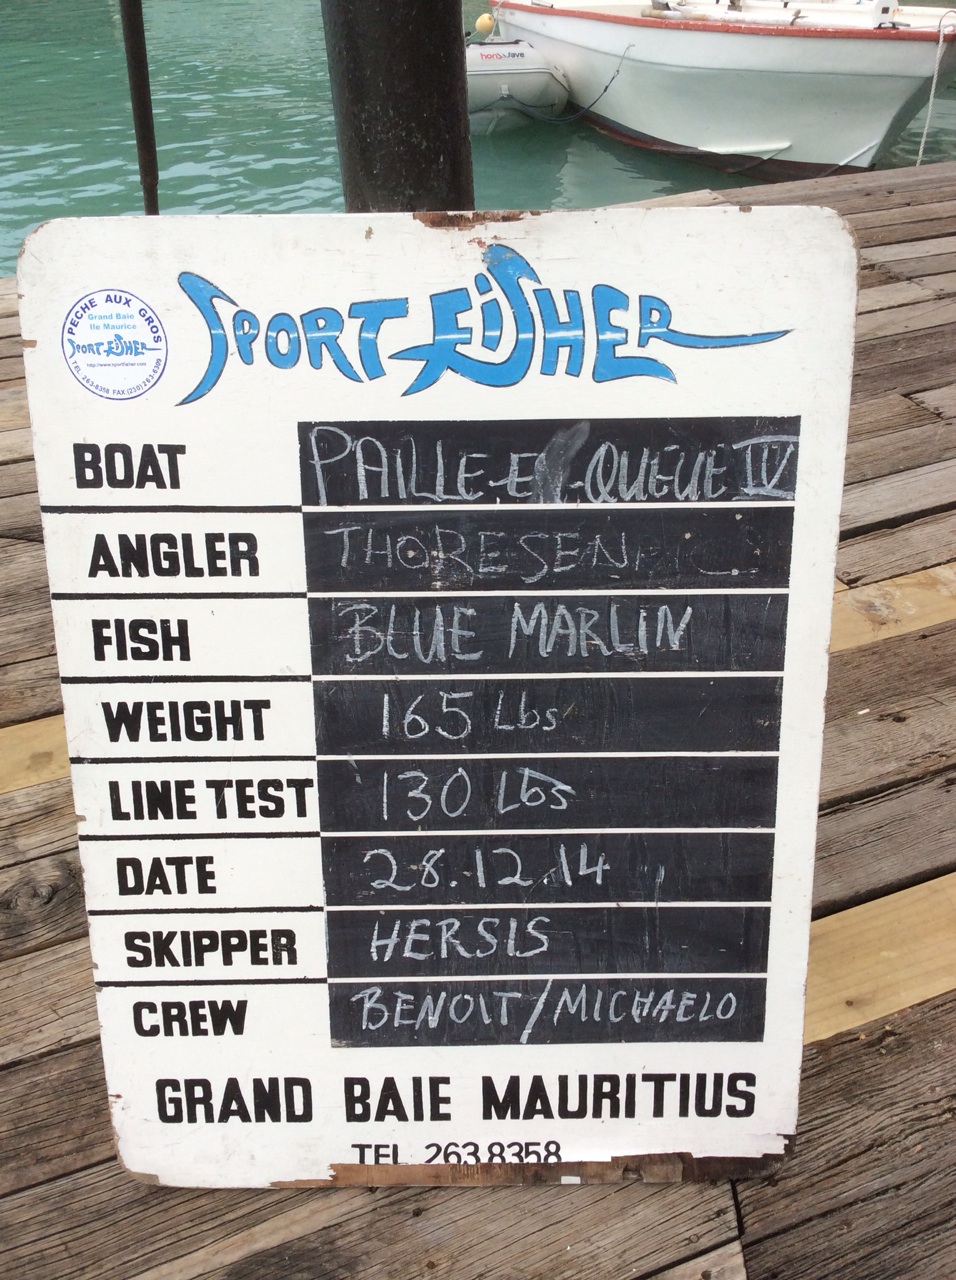 PECHE AUX GROS
Grand Baie
Ile Maurice
SPORT FISHER
http://www.sportfisher.com
TEL. 263-8358 FAX.(230) 263-6309
SPORT FISHER
BOAT PAILLE-E -QUEUE IV
ANGLER THORESEN
FISH BLUE MARLIN
WEIGHT 165 Lbs
LINE TEST 130 Lbs
DATE 28.12.14
SKIPPER HERSIS
CREW BENOIT/MICHAELO
GRAND BAIE MAURITIUS
TEL 263 8358